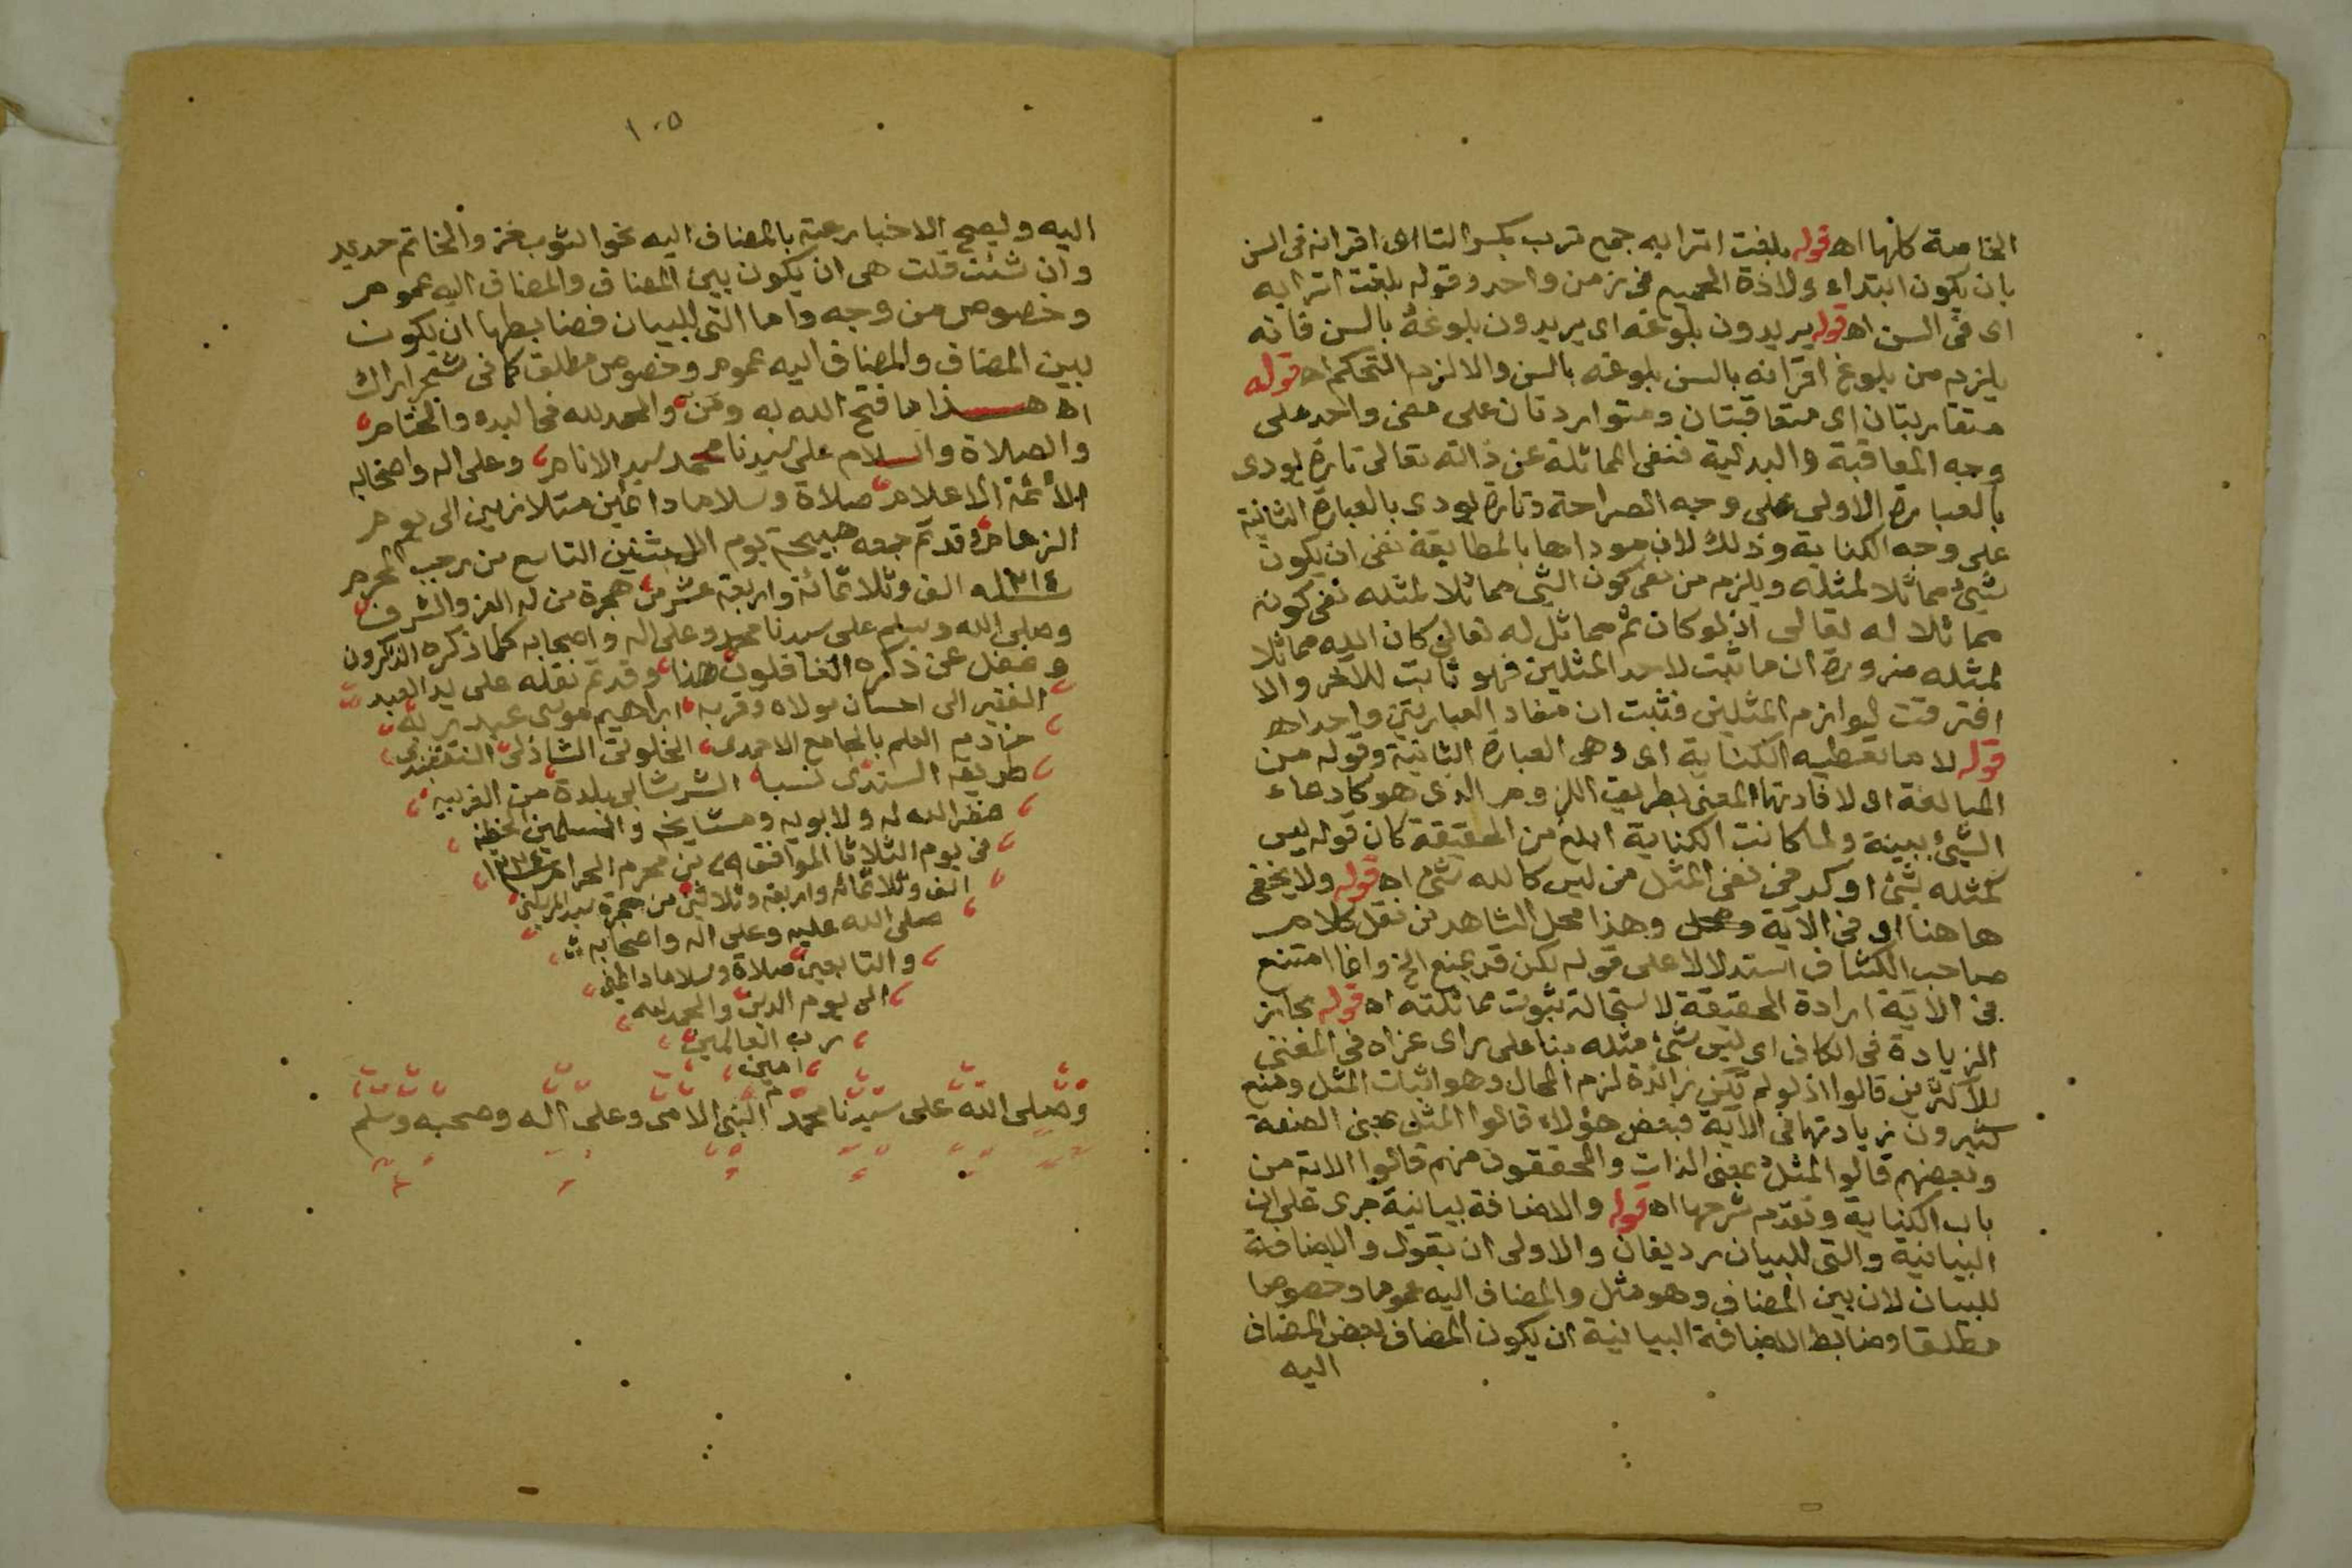 الخاصة كلها اه قوله بلغت اترابه جمع ترب بكسر التا اى اقرانه فى السن
بان يكون ابتداء ولادة الجميع فى زمن واحد وقوله بلغت اترابه
اى فى السن اه قوله يريدون بلوغه اى يريدون بلوغه بالسن فانه
يلزم من بلوغ اقرانه بالسن بلوغه بالسن والا لزم التحكم اه قوله
متقاربتان اى متعاقبتان ومتواردتان على معنى واحد على
وجه المعاقبة والبدلية فنفى المماثلة عن ذاته تعالى تارة يودى
بالعبارة الاولى على وجه الصراحة وتارة يودى بالعبارة الثانية
على وجه الكناية وذلك لان موداها بالمطابقة نفى ان يكون
شيئ مماثلا لمثله ويلزم من نفى كون الشيى مماثلا لمثله نفى كونه
مماثلا له تعالى اذ لو كان ثم مماثل له تعالى كان الله مماثلا
لمثله ضرورة ان ما ثبت لاحد المثلين فهو ثابت للآخر والا
افترقت لوازم المثلين فثبت ان مفاد العبارتين واحد اه
قوله لا ما تعطيه الكناية اى وهى العبارة الثانية وقوله من
المبالغة اى لافادتها المعنى بطريق اللزوم الذى هو كادعاء
الشيئ ببينة ولما كانت الكناية ابلغ من الحقيقة كان قوله ليس
كمثله شئ اوكد فى نفى المثل من ليس كالله شئ اه قوله ولا يخفى
هاهنا اى فى الآية وهذا محل الشاهد من نقل كلام
صاحب الكشاف استدلالا على قوله لكن قد يمتنع الخ وانما امتنع
فى الآية ارادة الحقيقة لاستحالة ثبوت مماثلته اه قوله بجائز
الزيادة فى الكاف اى ليس شئ مثله بنا على راى عزاه فى المغنى
للاكثرين قالوا اذ لو لم تكن زائدة لزم المحال وهو اثبات المثل ومنع
كثيرون زيادتها فى الآية فبعض هؤلاء قالوا المثل بمعنى الصفة
وبعضهم قالوا المثل بمعنى الذات والمحققون منهم قالوا الاية من
باب الكناية وتقدم شرحها اه قوله والاضافة بيانية جرى على ان
البيانية والتى للبيان رديفان والاولى ان يقول والاضافة
للبيان لان بين المضاف وهو مثل والمضاف اليه عموما وخصوصا
مطلقا وضابط الاضافة البيانية ان يكون المضاف بعض المضاف
اليه
١٠٥
اليه ويصح الاخبار عنه بالمضاف اليه نحو الثوب خز والخاتم حديد
وان شئت قلت هى ان يكون بين المضاف والمضاف اليه عموم
وخصوص من وجه واما التى للبيان فضابطها ان يكون
بين المضاف والمضاف اليه عموم وخصوص مطلق كما فى شجر اراك
اه هذا ما فتح الله به ومن والحمد لله فى البدء والختام
والصلاة والسلام على سيدنا محمد سيد الانام وعلى اله واصحابه
الأئمة الاعلام صلاة وسلاما دائمين متلازمين الى يوم
الزحام وقد تم جمعه صبيحة يوم الاثنين التاسع من رجب المحرم
١٣١٤ الف وثلاثمائة واربعة عشر من هجرة من له العز والشرف
وصلى الله وسلم على سيدنا محمد وعلى اله واصحابه كلما ذكره الذاكرون
وغفل عن ذكره الغافلون هذا وقد تم نقله على يد العبد
الفقير الى احسان مولاه وقربه ابراهيم موسى عبد ربه
خادم العلم بالجامع الاحمدى الخلوتى الشاذلى النقشبندى
طريقة السندى نسبا الشرشابى بلدة من الغربيه
غفر الله له ولابويه ومشايخه والمسلمين
فى يوم الثلاثا الموافق ٢٩ من محرم الحرام ١٣٣٤
الف وثلاثمائه واربعه وثلاثين من هجرة سيد المرسلين
صلى الله عليه وعلى اله واصحابه
والتابعين صلاة وسلاما دائمين
الى يوم الدين والحمد لله
رب العالمين
امين
م
وصلى الله على سيدنا محمد النبى الامى وعلى اله وصحبه وسلم